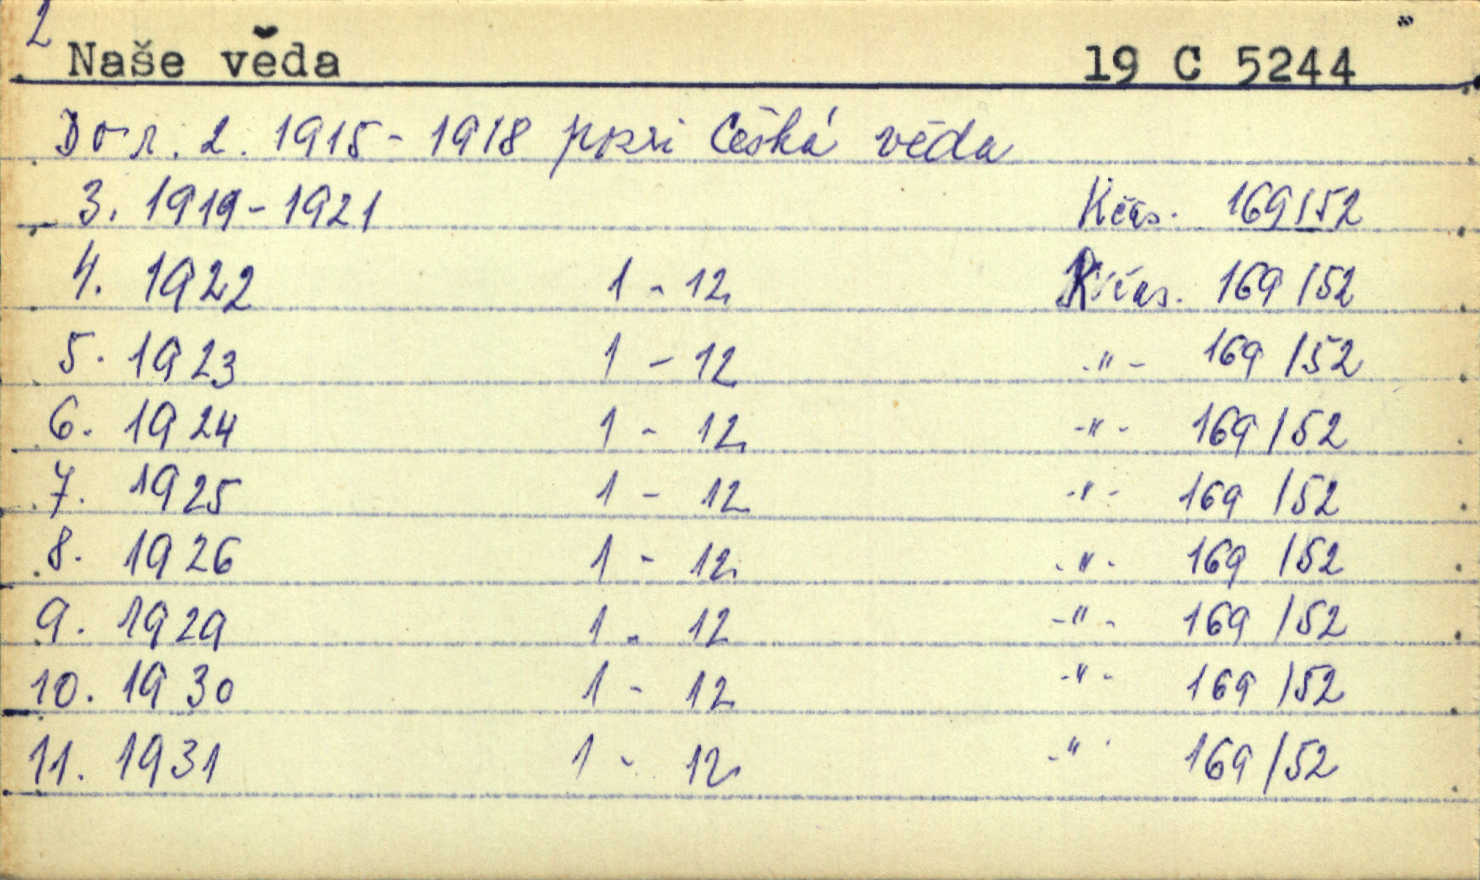 2
Naše věda 19 C 5244
Do r. 2. 1915 - 1918 pozri Česká věda
3. 1919 - 1921 Kčas. 169/52
4. 1922 1 - 12 Kčas. 169/52
5. 1923 1 - 12 -"- 169/52
6. 1924 1 - 12 -"- 169/52
7. 1925 1 - 12 -"- 169/52
8. 1926 1 - 12 -"- 169/52
9. 1929 1 - 12 -"- 169/52
10. 1930 1 - 12 -"- 169/52
11. 1931 1 - 12 -"- 169/52